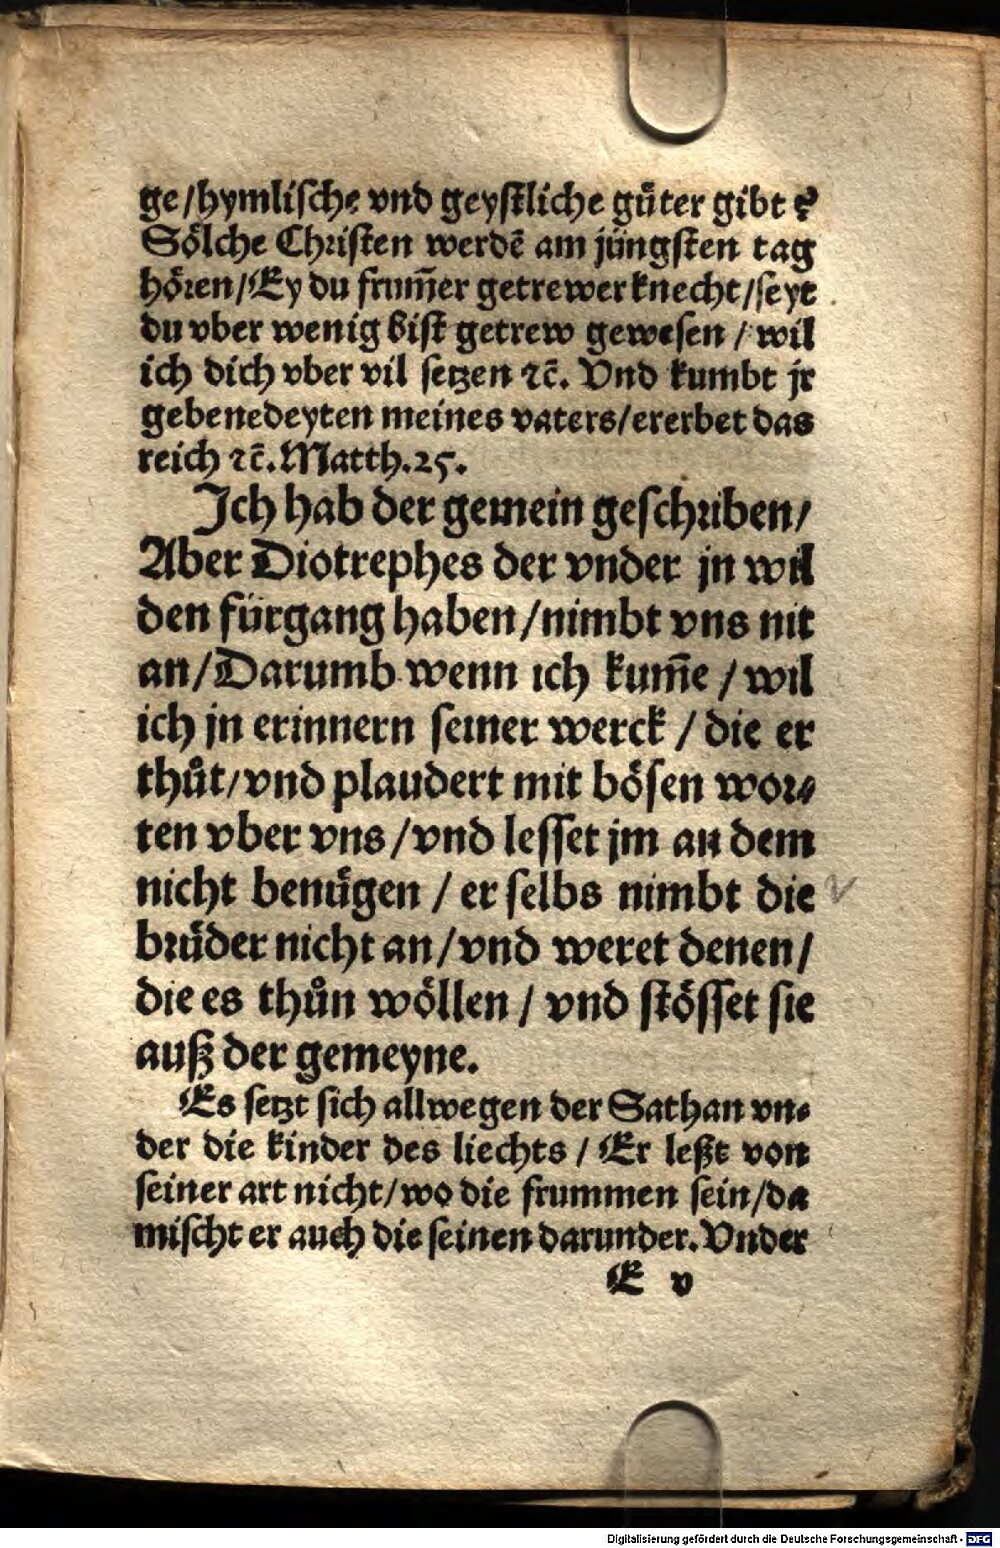 ge/hymlische vnd geystliche gůter gibt ?
Sölche Christen werdē am jüngsten tag
hören/Ey du frum̄er getrewer knecht/seyt
du vber wenig bist getrew gewesen / wil
ich dich vber vil setzen ꝛc̄. Vnd kumbt jr
gebenedeyten meines vaters/ererbet das
reich ꝛc̄. Matth.25.
Ich hab der gemein geschriben/
Aber Diotrephes der vnder jn wil
den fürgang haben/nimbt vns nit
an/Darumb wenn ich kum̄e / wil
ich jn erinnern seiner werck / die er
thůt/vnd plaudert mit bösen wor⸗
ten vber vns/vnd lesset jm an dem
nicht benuͤgen / er selbs nimbt die
bruͤder nicht an/vnd weret denen/
die es thůn wöllen / vnd stösset sie
auß der gemeyne.
Es setzt sich allwegen der Sathan vn⸗
der die kinder des liechts / Er leßt von
seiner art nicht/wo die frummen sein/da
mischt er auch die seinen darunder. Vnder
E v
Digitalisierung gefördert durch die Deutsche Forschungsgemeinschaft - DFG